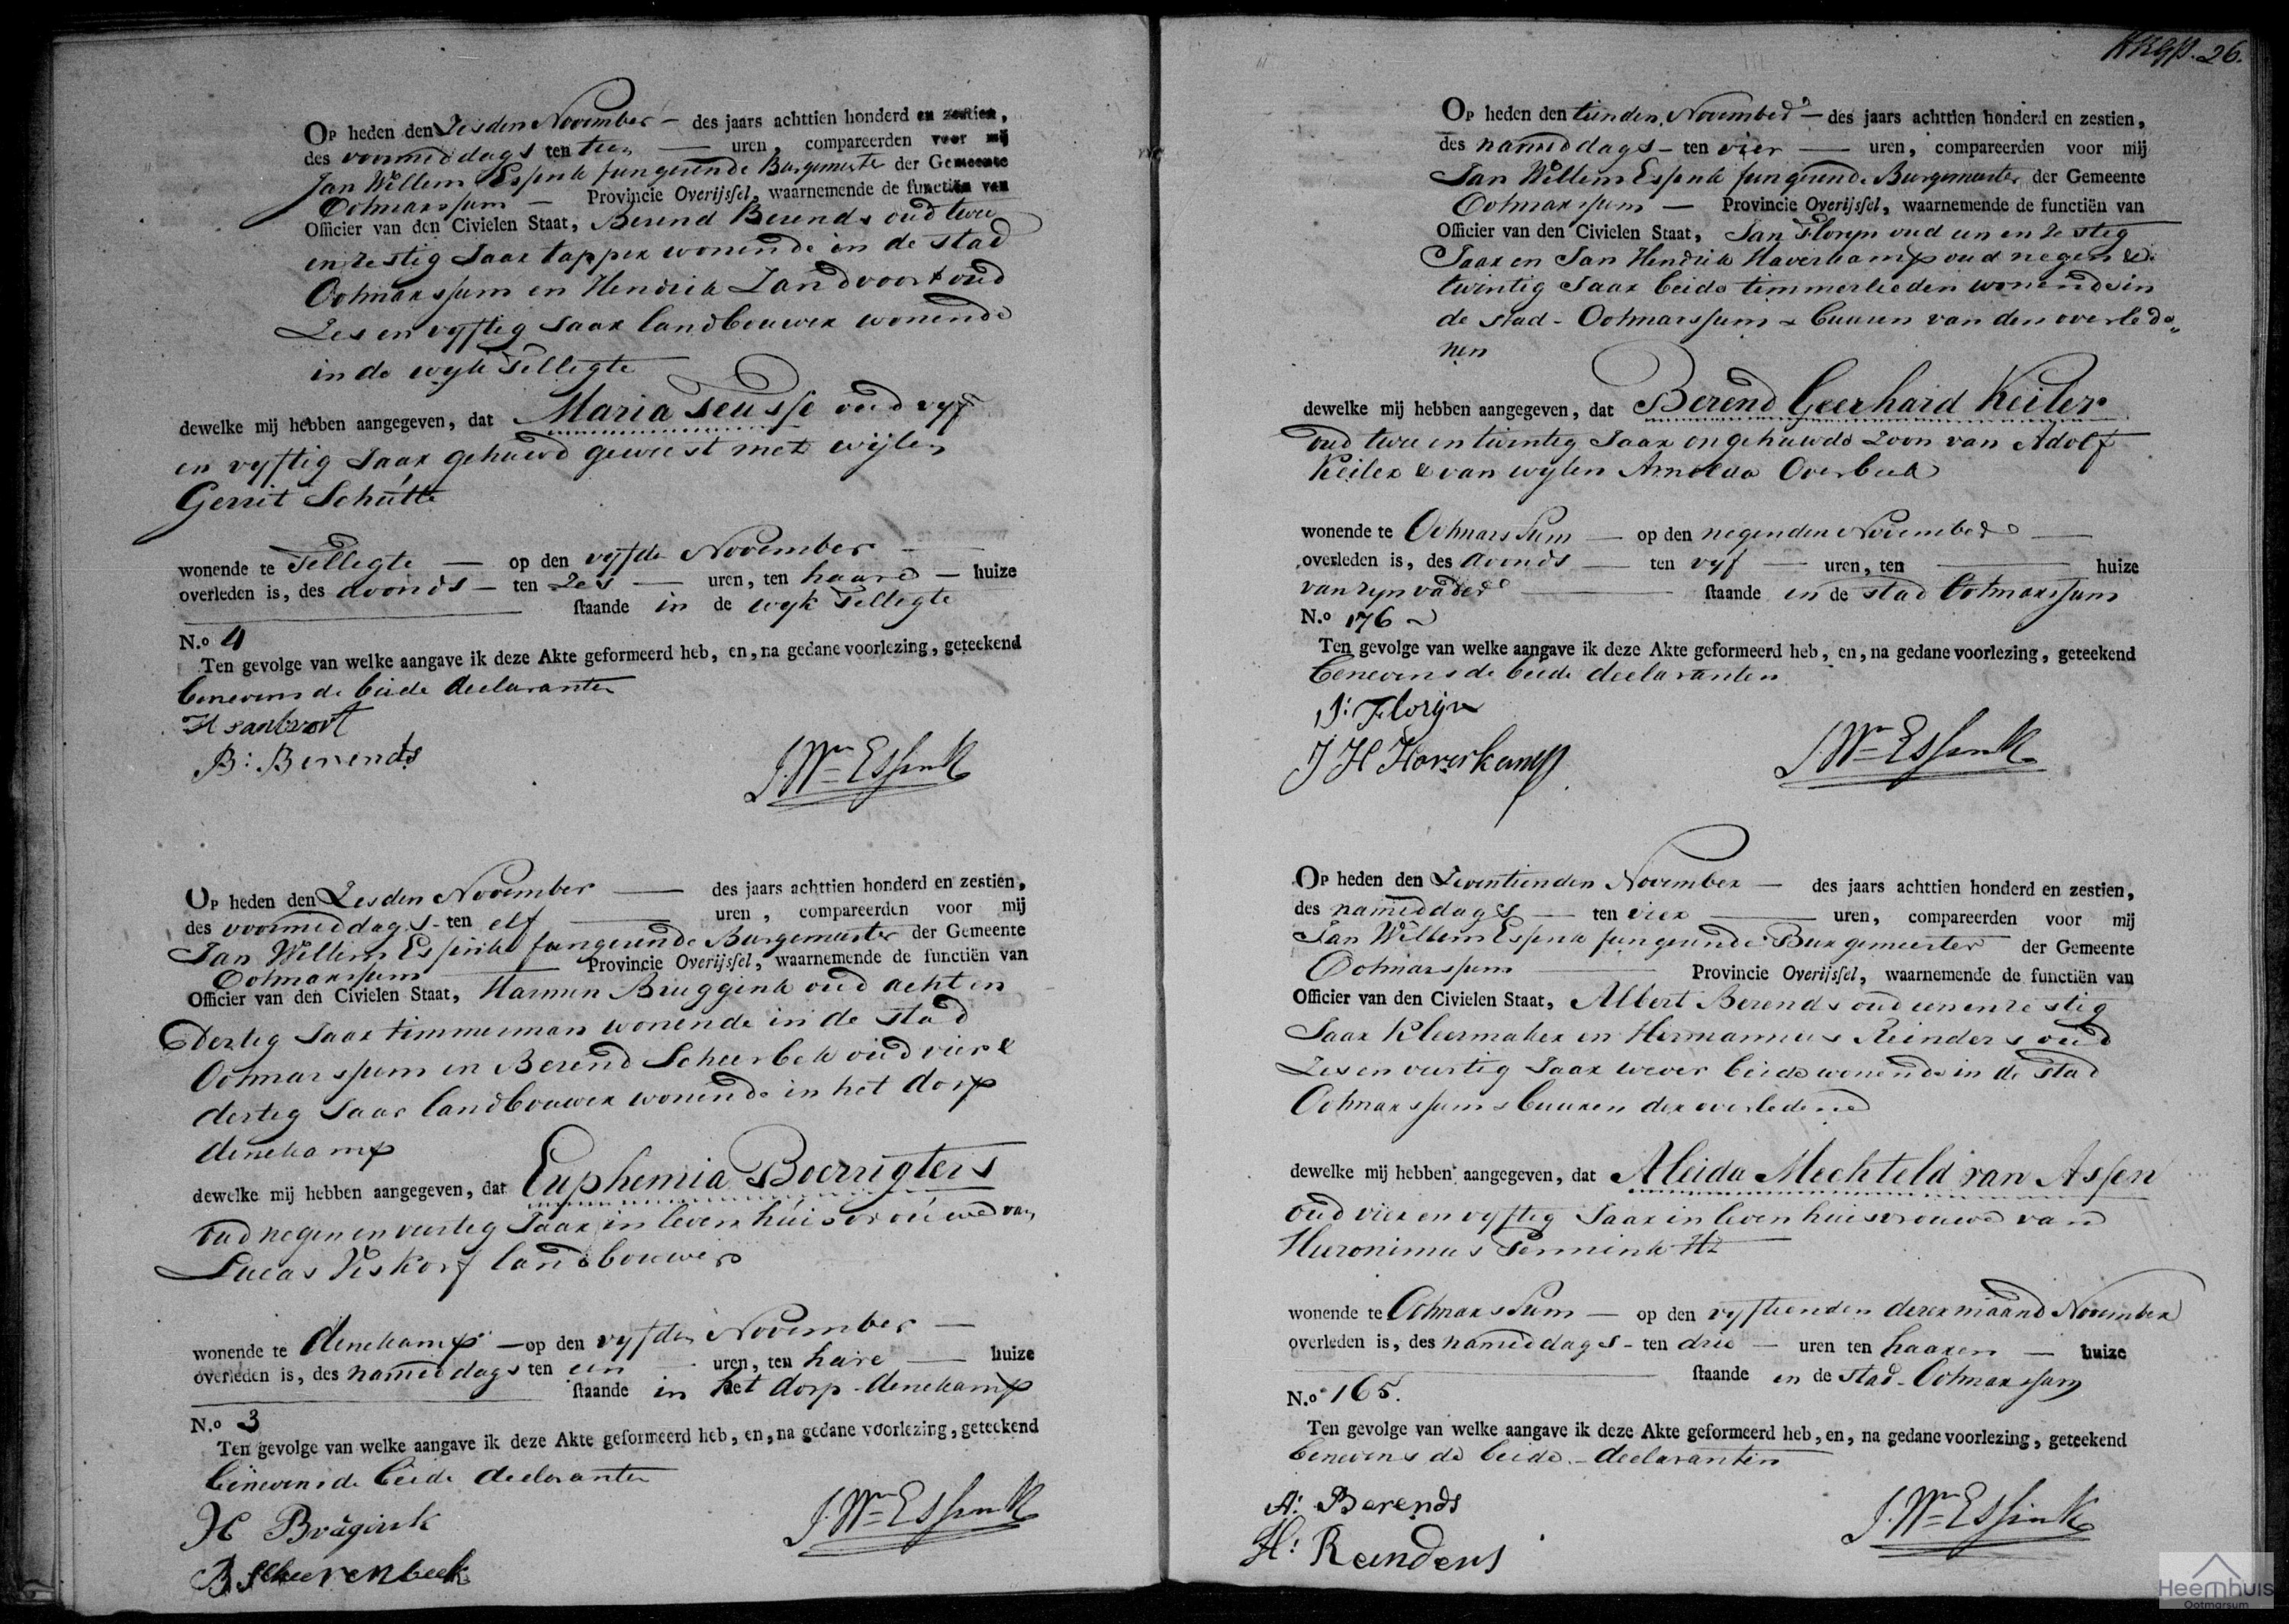 OP heden den Zesden November — des jaars achttien honderd en zestien,
des voormiddags ten tien — uren, compareerden voor mij
Jan Willem Essink fungerende Burgemeester der Gemeente
Ootmarssum — Provincie Overijssel, waarnemende de functiën van
Officier van den Civielen Staat, Berend Berends oud twee
en zestig Jaar tapper wonende in de stad
Ootmarssum en Hendrik Zandvoort oud
Zes en vyftig Jaar landbouwer wonende
in de wyk Tilligte
dewelke mij hebben aangegeven, dat Maria Teusse oud vyf
en vyftig Jaar gehuwd geweest met wijlen
Gerrit Schutte
wonende te Tilligte — op den vyfden November —
overleden is, des avonds — ten Zes — uren, ten haare — huize
staande in de wyk Tilligte
N.o 4
Ten gevolge van welke aangave ik deze Akte geformeerd heb, en, na gedane voorlezing, geteekend
benevens de beide declaranten
H santvort
B: Berends
J. Wm Essink
OP heden den Zesden November — des jaars achttien honderd en zestien,
des voormiddags - ten elf — uren, compareerden voor mij
Jan Willem Essink fungerende Burgemeester der Gemeente
Ootmarssum — Provincie Overijssel, waarnemende de functiën van
Officier van den Civielen Staat, Harmen Bruggink oud acht en
dertig Jaar timmerman wonende in de stad
Ootmarssum en Berend Scheerbek oud vier &
dertig Jaar landbouwer wonende in het dorp
denekamp
dewelke mij hebben aangegeven, dat Euphemia Boerrigters
oud negen en veertig Jaar in leven huisvrouwe van
Lucas Viskorf landbouwer
wonende te denekamp — op den vyfden November —
overleden is, des namiddags ten een — uren, ten haare — huize
staande in het dorp - denekamp
N.o 3
Ten gevolge van welke aangave ik deze Akte geformeerd heb, en, na gedane voorlezing, geteekend
benevens de beide declaranten
H Brugink
B Scheerenbeek
J. Wm Essink
26.
OP heden den tienden November — des jaars achttien honderd en zestien,
des namiddags - ten vier — uren, compareerden voor mij
Jan Willem Essink fungerende Burgemeester der Gemeente
Ootmarssum — Provincie Overijssel, waarnemende de functiën van
Officier van den Civielen Staat, Jan Floryn oud een en zestig
Jaar en Jan Hendrik Haverkamp oud negen &
twintig Jaar beide timmerlieden wonende in
de stad - Ootmarssum & buuren van den overlede„
nen
dewelke mij hebben aangegeven, dat Berend Geerhard Keiler
oud twee en twintig Jaar ongehuwde Zoon van Adolf
Keiler & van wylen Arnolda Overbeek
wonende te Ootmarssum — op den negenden November —
overleden is, des avonds — ten vyf — uren, ten — huize
van zyn vader — staande in de stad Ootmarssum
N.o 176
Ten gevolge van welke aangave ik deze Akte geformeerd heb, en, na gedane voorlezing, geteekend
benevens de beide declaranten
J: Florijn
J H Haverkamp
J. Wm Essink
OP heden den Zeventienden November — des jaars achttien honderd en zestien,
des namiddags — ten vier — uren, compareerden voor mij
Jan Willem Essink fungerende Burgemeester der Gemeente
Ootmarssum — Provincie Overijssel, waarnemende de functiën van
Officier van den Civielen Staat, Albert Berends oud een en zestig
Jaar Kleermaker en Hermannus Reinders oud
Zes en veertig Jaar wever beide wonende in de stad
Ootmarssum & buuren der overledene
dewelke mij hebben aangegeven, dat Aleida Mechteld van Assen
oud vier en vyftig Jaar in leven huisvrouwe van
Hieronimus Pennink Hz
wonende te Ootmarssum — op den vyftienden dezer maand November
overleden is, des namiddags - ten drie — uren ten haaren — huize
staande in de stad - Ootmarssum
N.o 165.
Ten gevolge van welke aangave ik deze Akte geformeerd heb, en, na gedane voorlezing, geteekend
benevens de beide - declaranten
A: Berends
H: Reinders
J. Wm Essink
Heemhuis
Ootmarsum